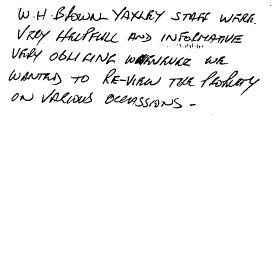 W.H. BROWN YAXLEY STAFF WERE.
VERY HELPFULL AND INFORMATIVE
VERY OBLIGING WHENEVER WE
WANTED TO RE-VIEW THE PROPERTY
ON VARIOUS OCCASSIONS -